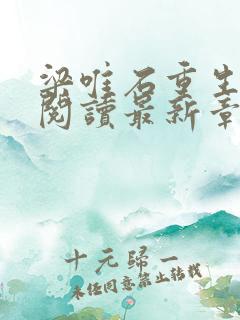 梁唯石重生
閱讀最新章
十元歸一
未經同意禁止轉載